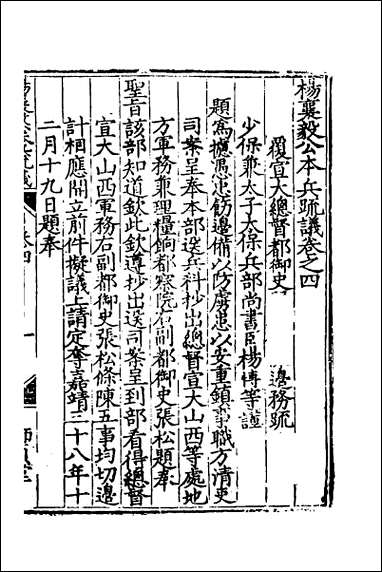 楊襄毅公本兵疏議卷之四
覆宣大總督都御史　邊務疏
少保兼太子太保兵部尚書臣楊博等謹
題為攄愚忠飭邊備以防虜患以安重鎮事職方清吏
司案呈奉本部送兵科抄出總督宣大山西等處地
方軍務兼理糧餉都察院右副都御史張松題奉
聖旨該部知道欽此欽遵抄出送司案呈到部看得總督
宣大山西軍務右副都御史張松條陳五事均切邊
計相應開立前件擬議上請定奪嘉靖三十八年十
二月十九日題奉